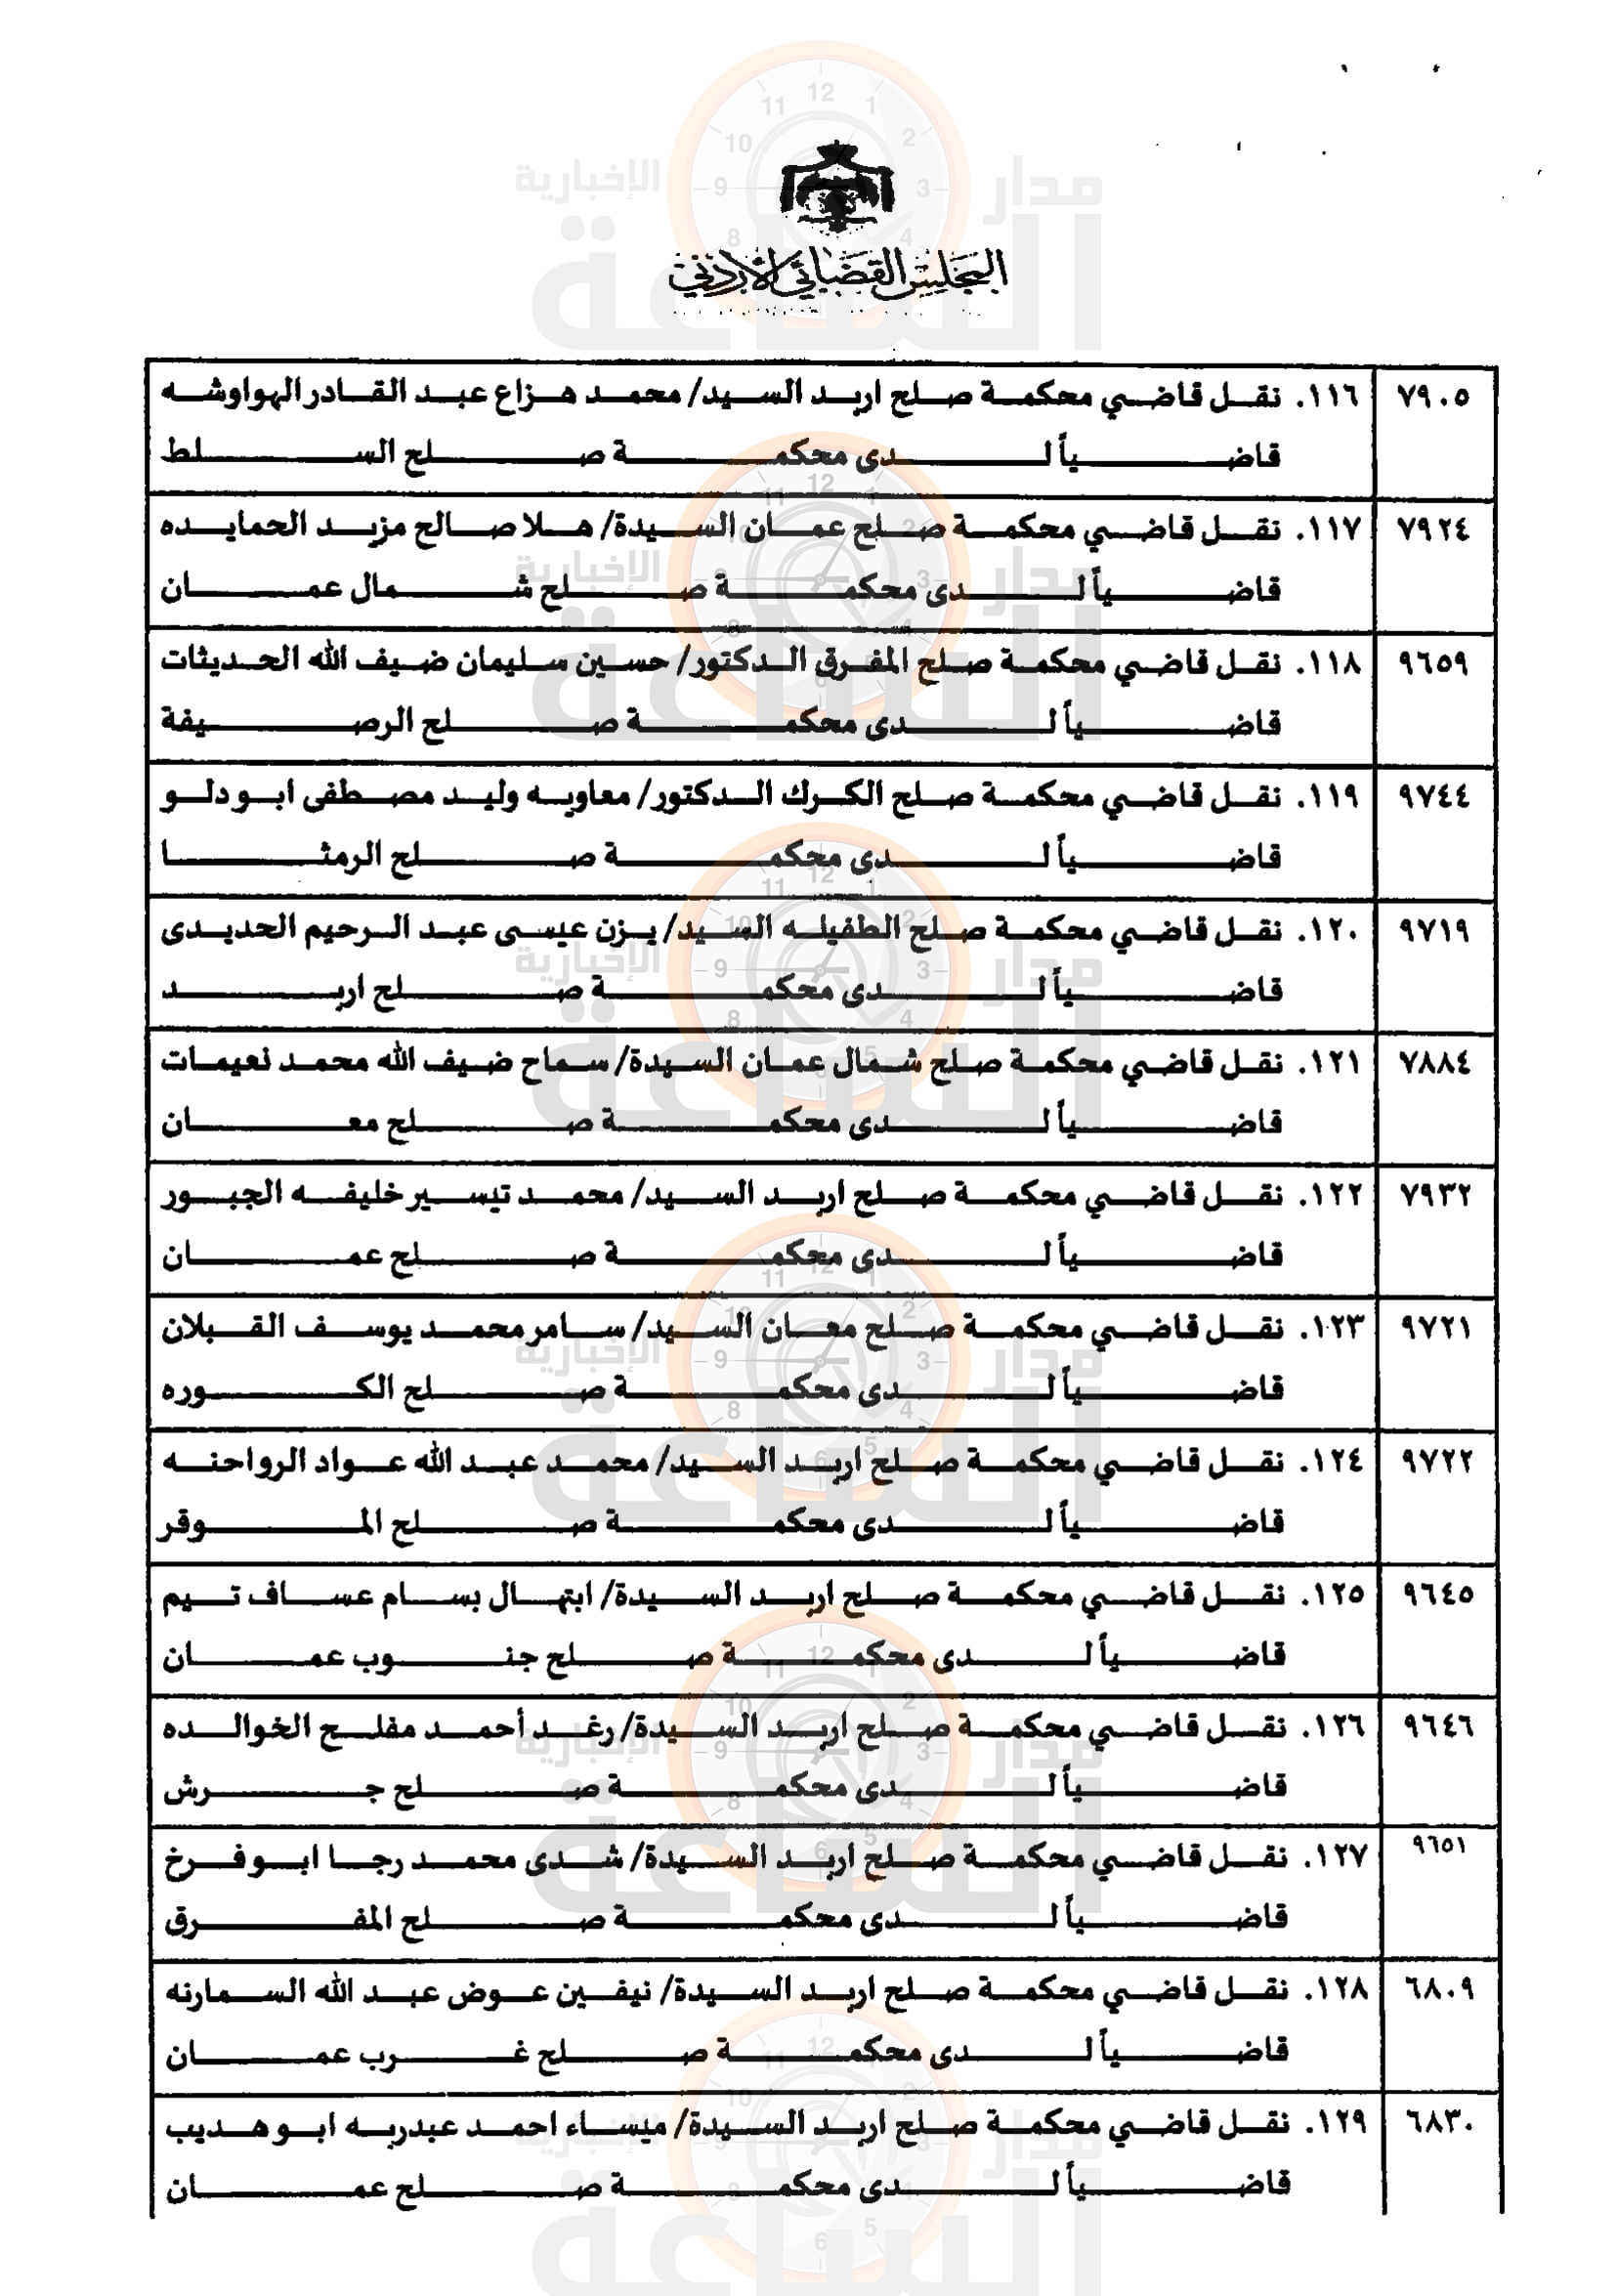 المجلس القضائي الأردني
٧٩٠٥ ١١٦. نقل قاضي محكمة صلح اربد السيد/ محمد هزاع عبد القادر الهواوشه
قاضياً لدى محكمة صلح السلط
٧٩٢٤ ١١٧. نقل قاضي محكمة صلح عمان السيدة/ هلا صالح مزيد الحمايده
قاضياً لدى محكمة صلح شمال عمان
٩٦٥٩ ١١٨. نقل قاضي محكمة صلح المفرق الدكتور/ حسين سليمان ضيف الله الحديثات
قاضياً لدى محكمة صلح الرصيفة
٩٧٤٤ ١١٩. نقل قاضي محكمة صلح الكرك الدكتور/ معاويه وليد مصطفى ابو دلو
قاضياً لدى محكمة صلح الرمثا
٩٧١٩ ١٢٠. نقل قاضي محكمة صلح الطفيله السيد/ يزن عيسى عبد الرحيم الحديدى
قاضياً لدى محكمة صلح اربد
٧٨٨٤ ١٢١. نقل قاضي محكمة صلح شمال عمان السيدة/ سماح ضيف الله محمد نعيمات
قاضياً لدى محكمة صلح معان
٧٩٣٢ ١٢٢. نقل قاضي محكمة صلح اربد السيد/ محمد تيسير خليفه الجبور
قاضياً لدى محكمة صلح عمان
٩٧٢١ ١٢٣. نقل قاضي محكمة صلح معان السيد/ سامر محمد يوسف القبلان
قاضياً لدى محكمة صلح الكوره
٩٧٢٢ ١٢٤. نقل قاضي محكمة صلح اربد السيد/ محمد عبد الله عواد الرواحنه
قاضياً لدى محكمة صلح الموقر
٩٦٤٥ ١٢٥. نقل قاضي محكمة صلح اربد السيدة/ ابتهال بسام عساف تيم
قاضياً لدى محكمة صلح جنوب عمان
٩٦٤٦ ١٢٦. نقل قاضي محكمة صلح اربد السيدة/ رغد أحمد مفلح الخوالده
قاضياً لدى محكمة صلح جرش
٩٦٥١ ١٢٧. نقل قاضي محكمة صلح اربد السيدة/ شدى محمد رجا ابو فرخ
قاضياً لدى محكمة صلح المفرق
٦٨٠٩ ١٢٨. نقل قاضي محكمة صلح اربد السيدة/ نيفين عوض عبد الله السمارنه
قاضياً لدى محكمة صلح غرب عمان
٦٨٣٠ ١٢٩. نقل قاضي محكمة صلح اربد السيدة/ ميساء احمد عبدربه ابو هديب
قاضياً لدى محكمة صلح عمان
مدار الساعة الإخبارية